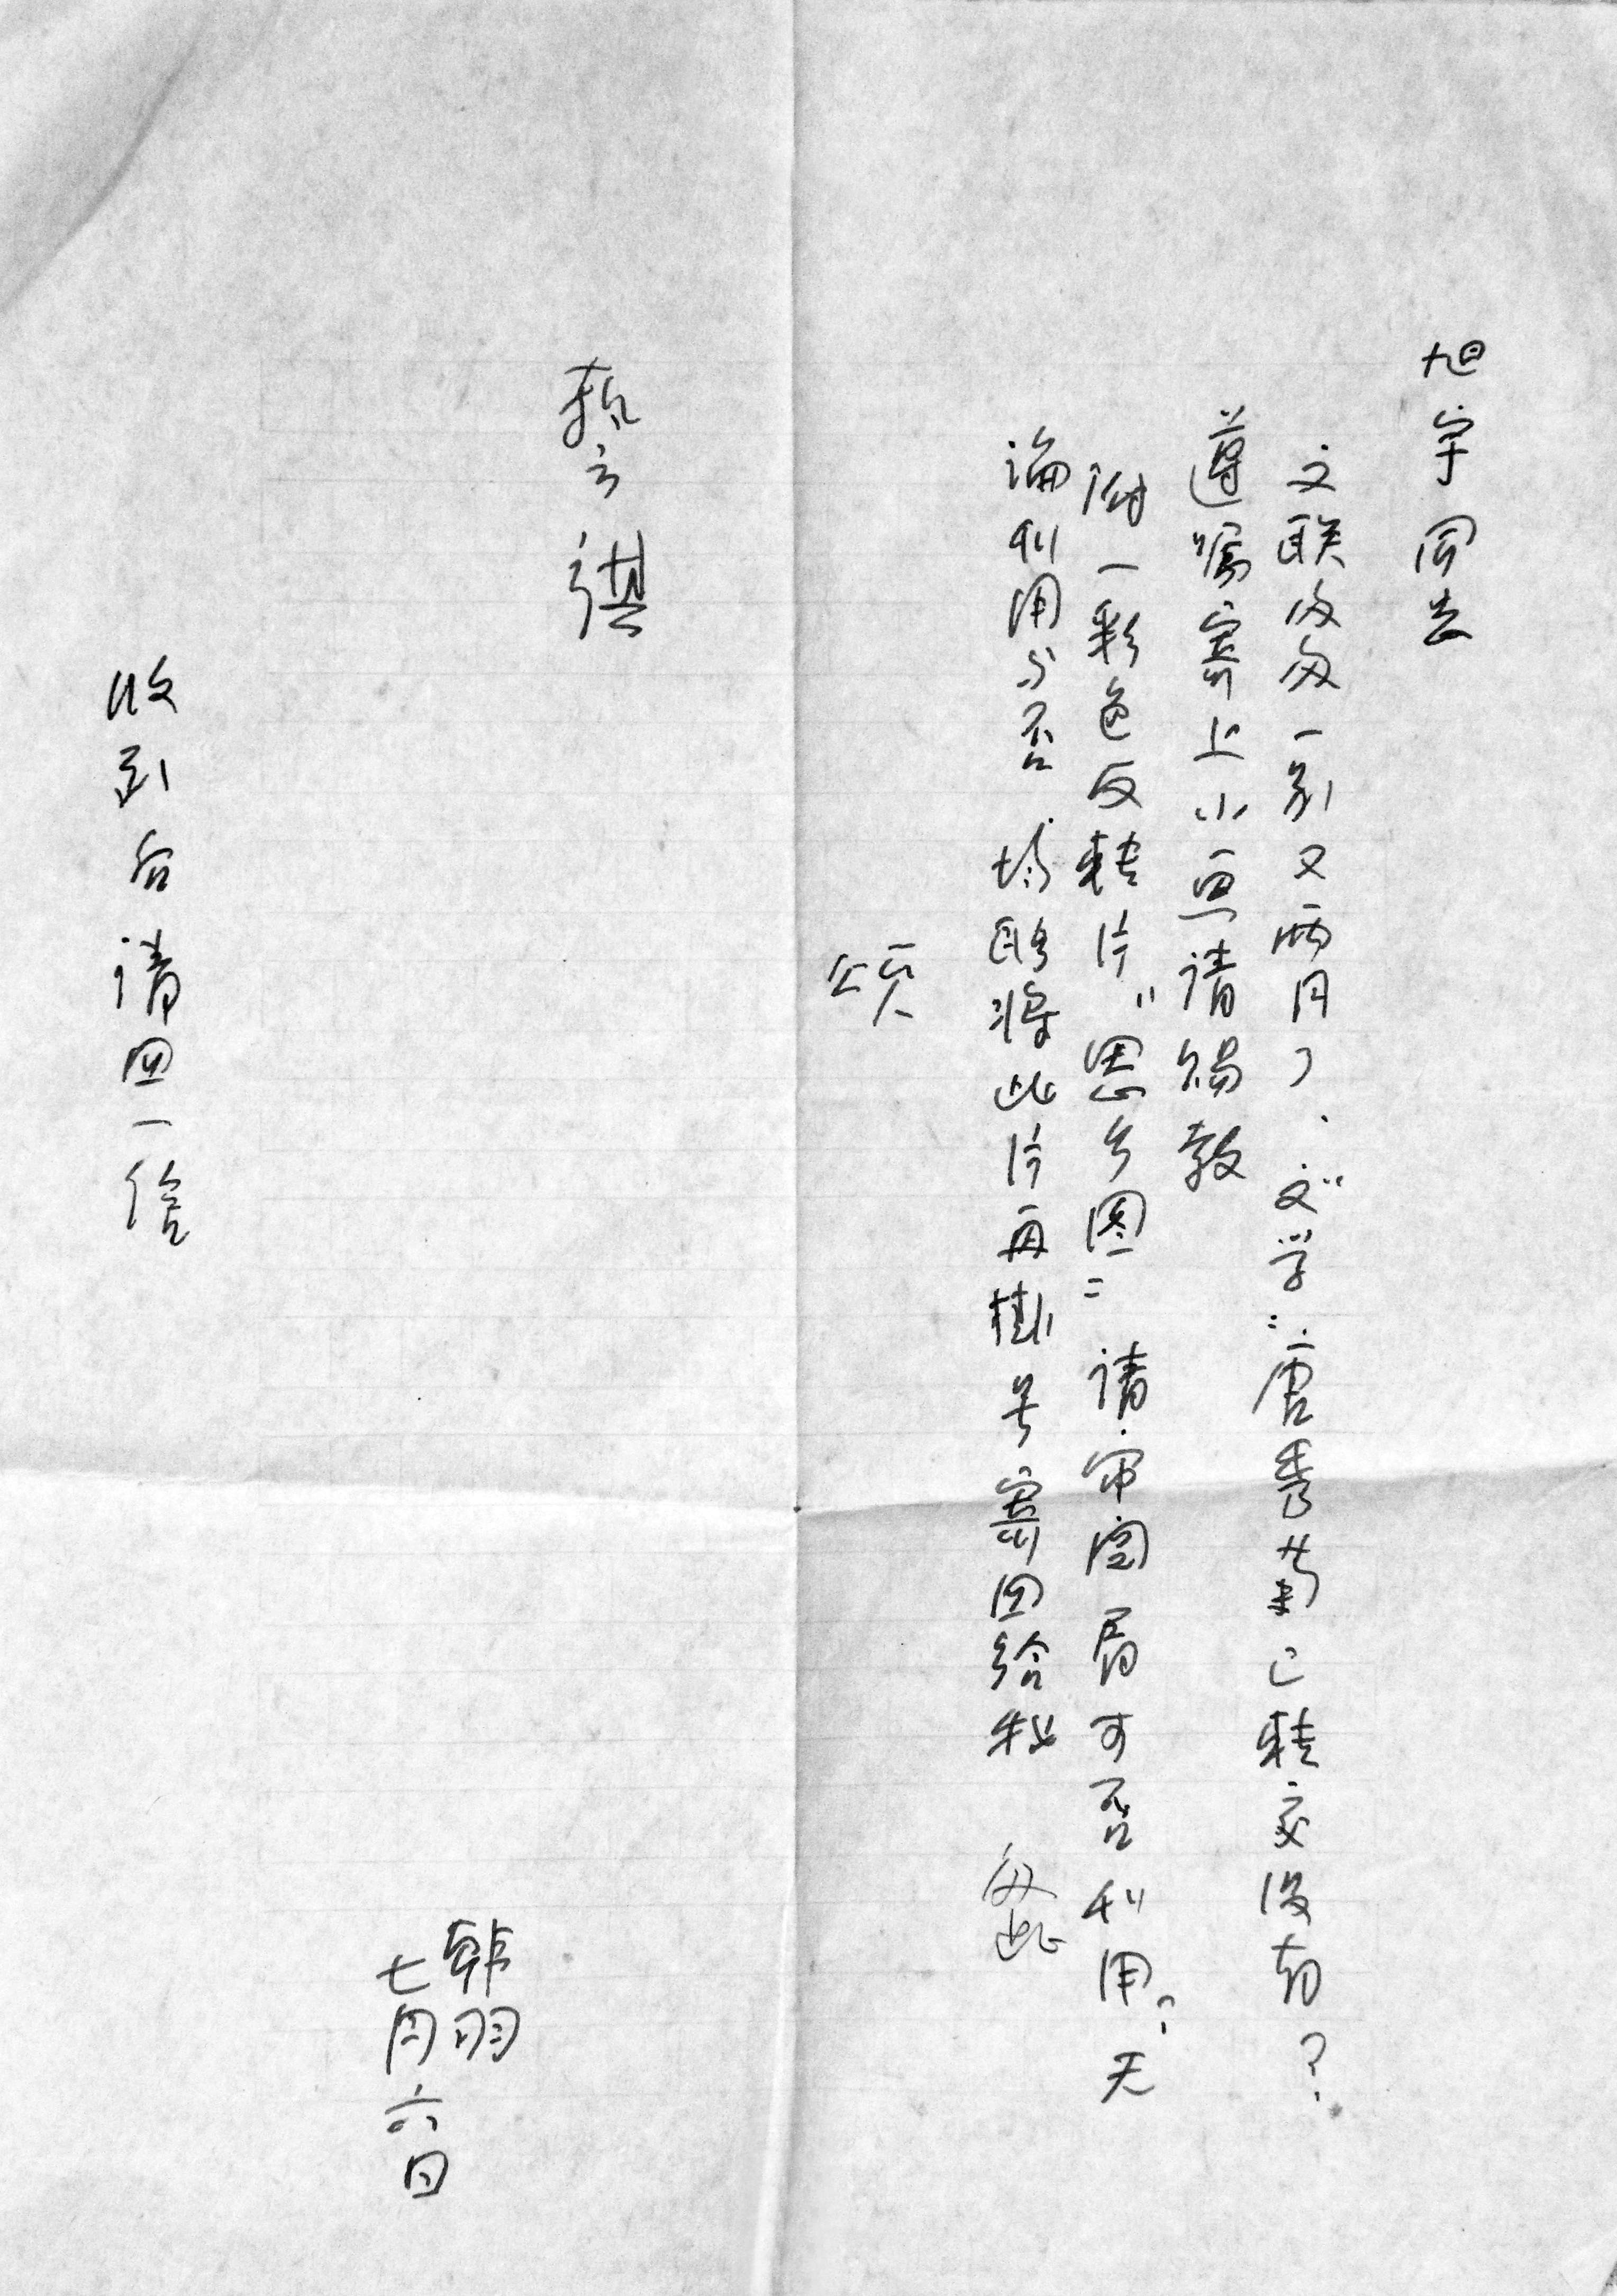 旭宇同志
文联匆匆一别又两月了．“文学”：唐秀 已转交没有？
遵嘱寄上小画请赐教
附一彩色反转片“恩乡图”请审阅 看可否利用？无
论利用与否 均盼将此片再挂号寄回给我 匆此
颂
暑安 祺
韩羽
七月六日
收到后请回一信